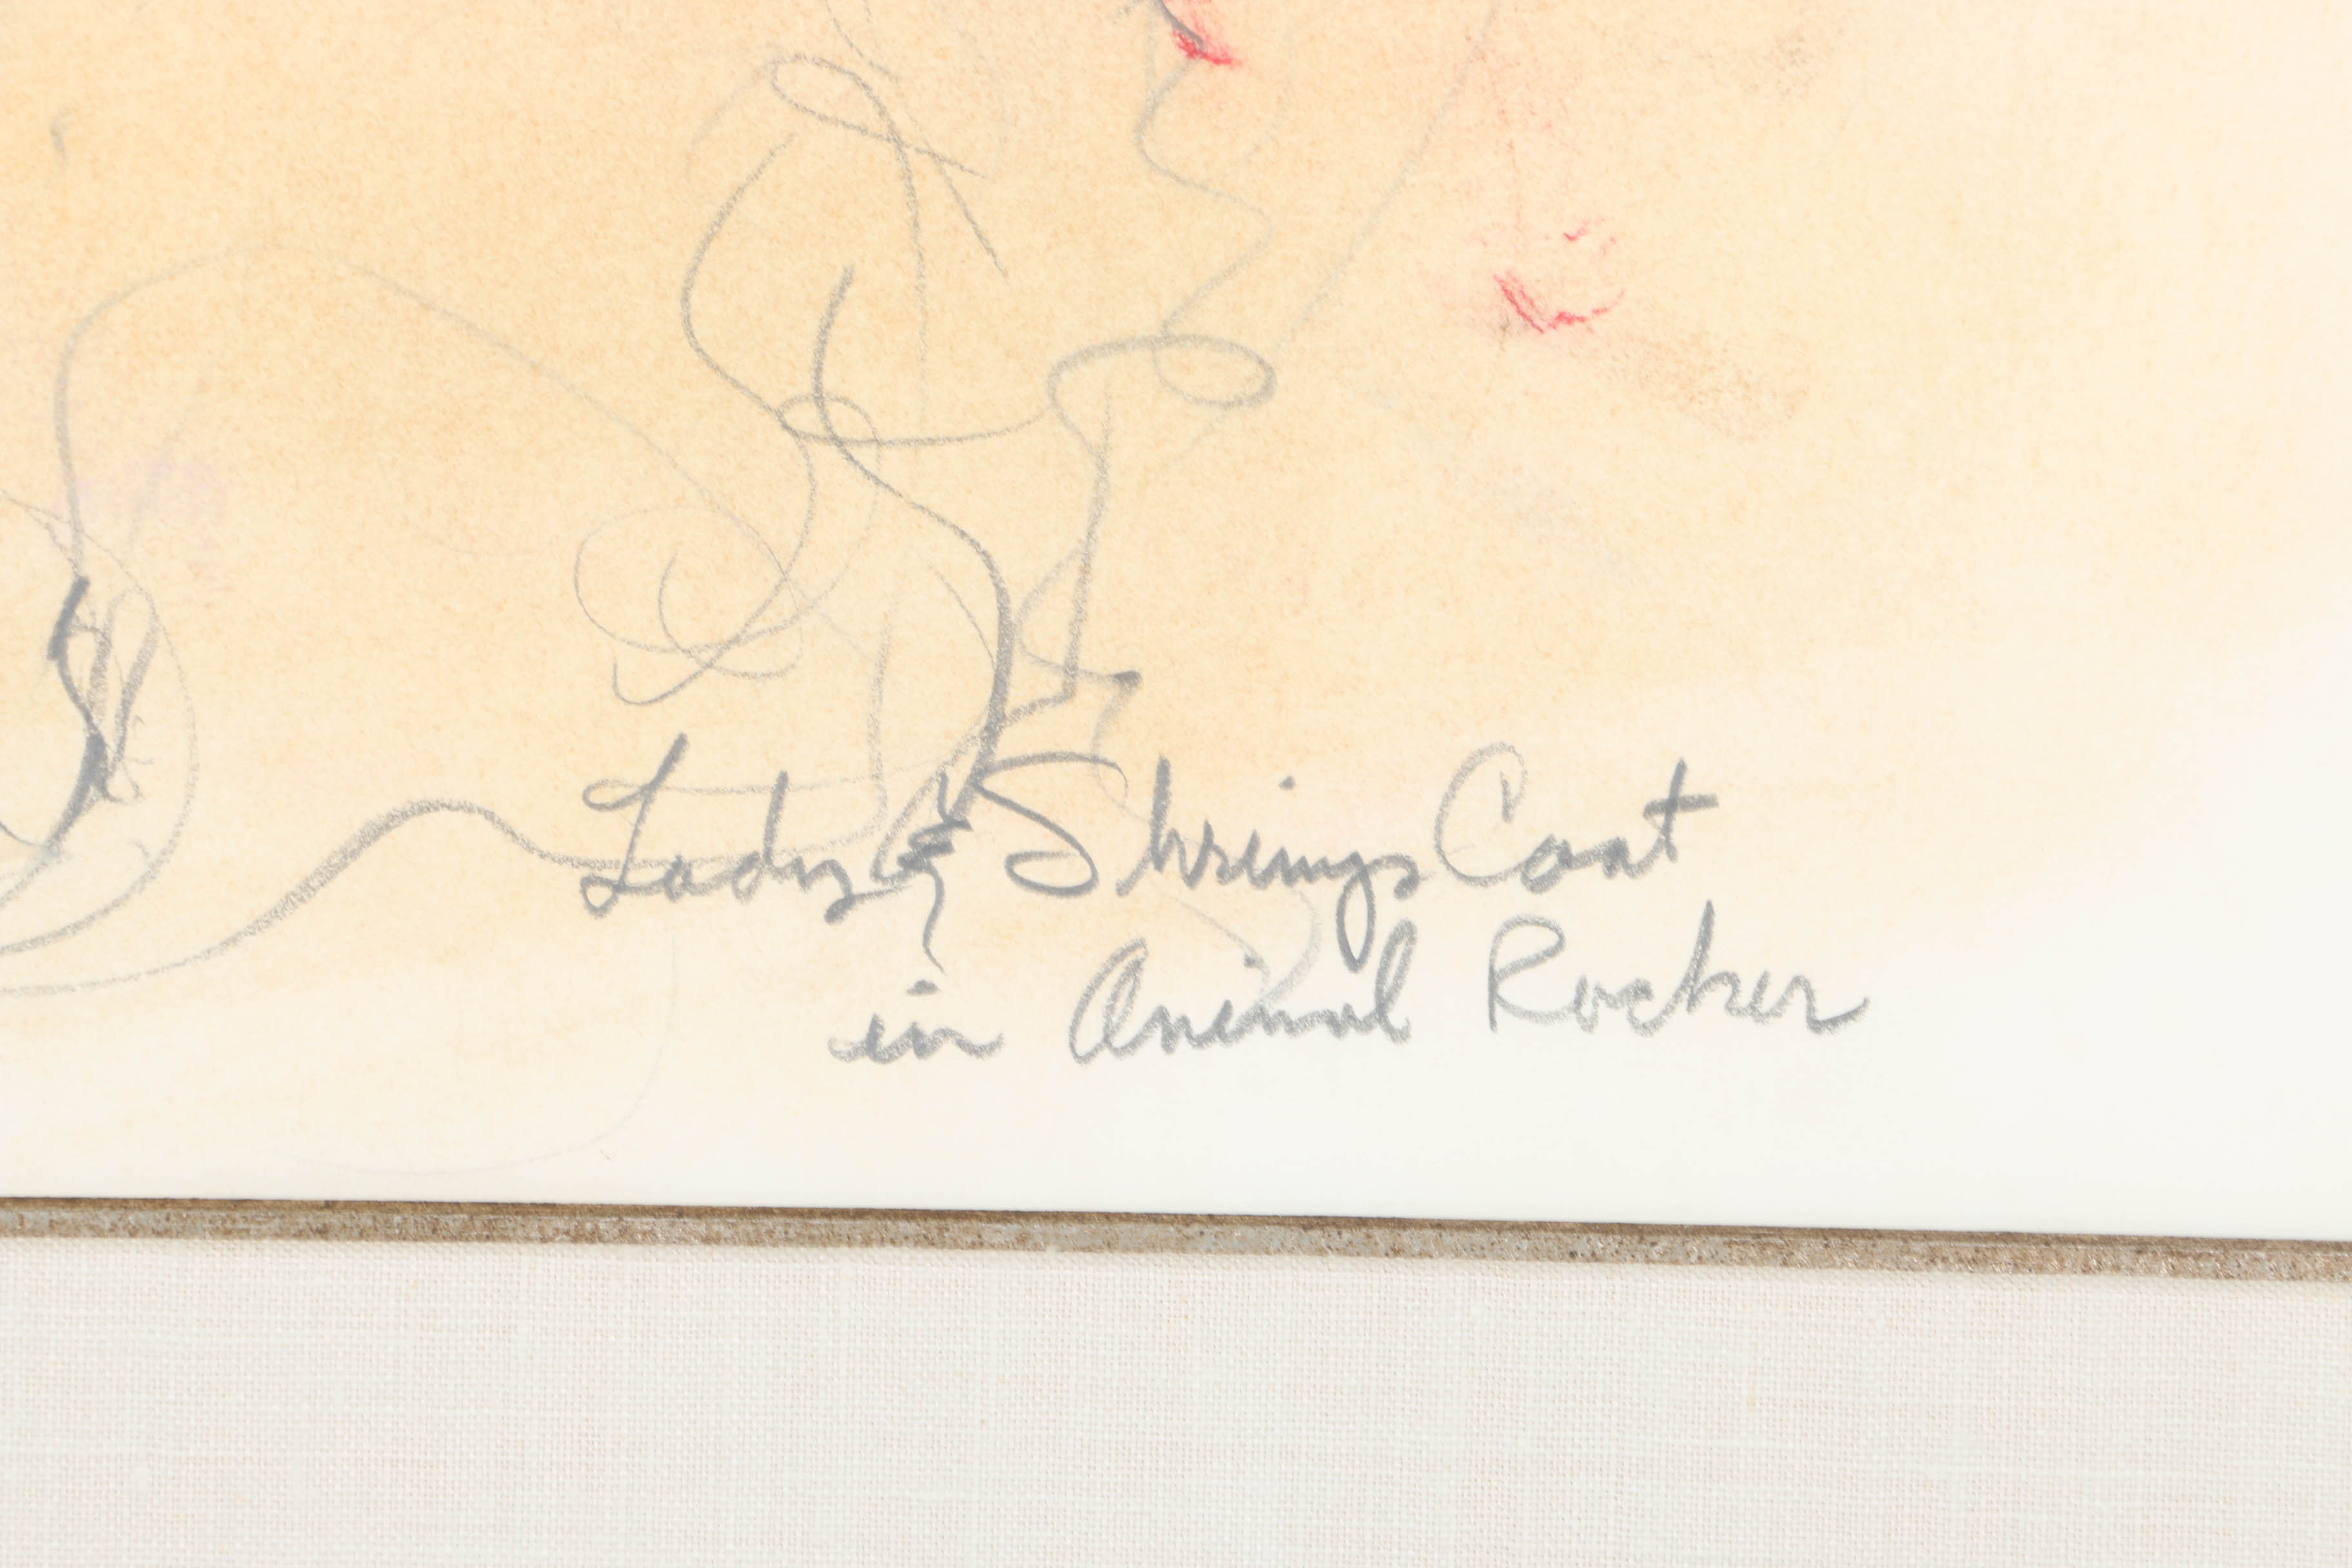 Lady & Shrimp Coat
in Animal Rocker